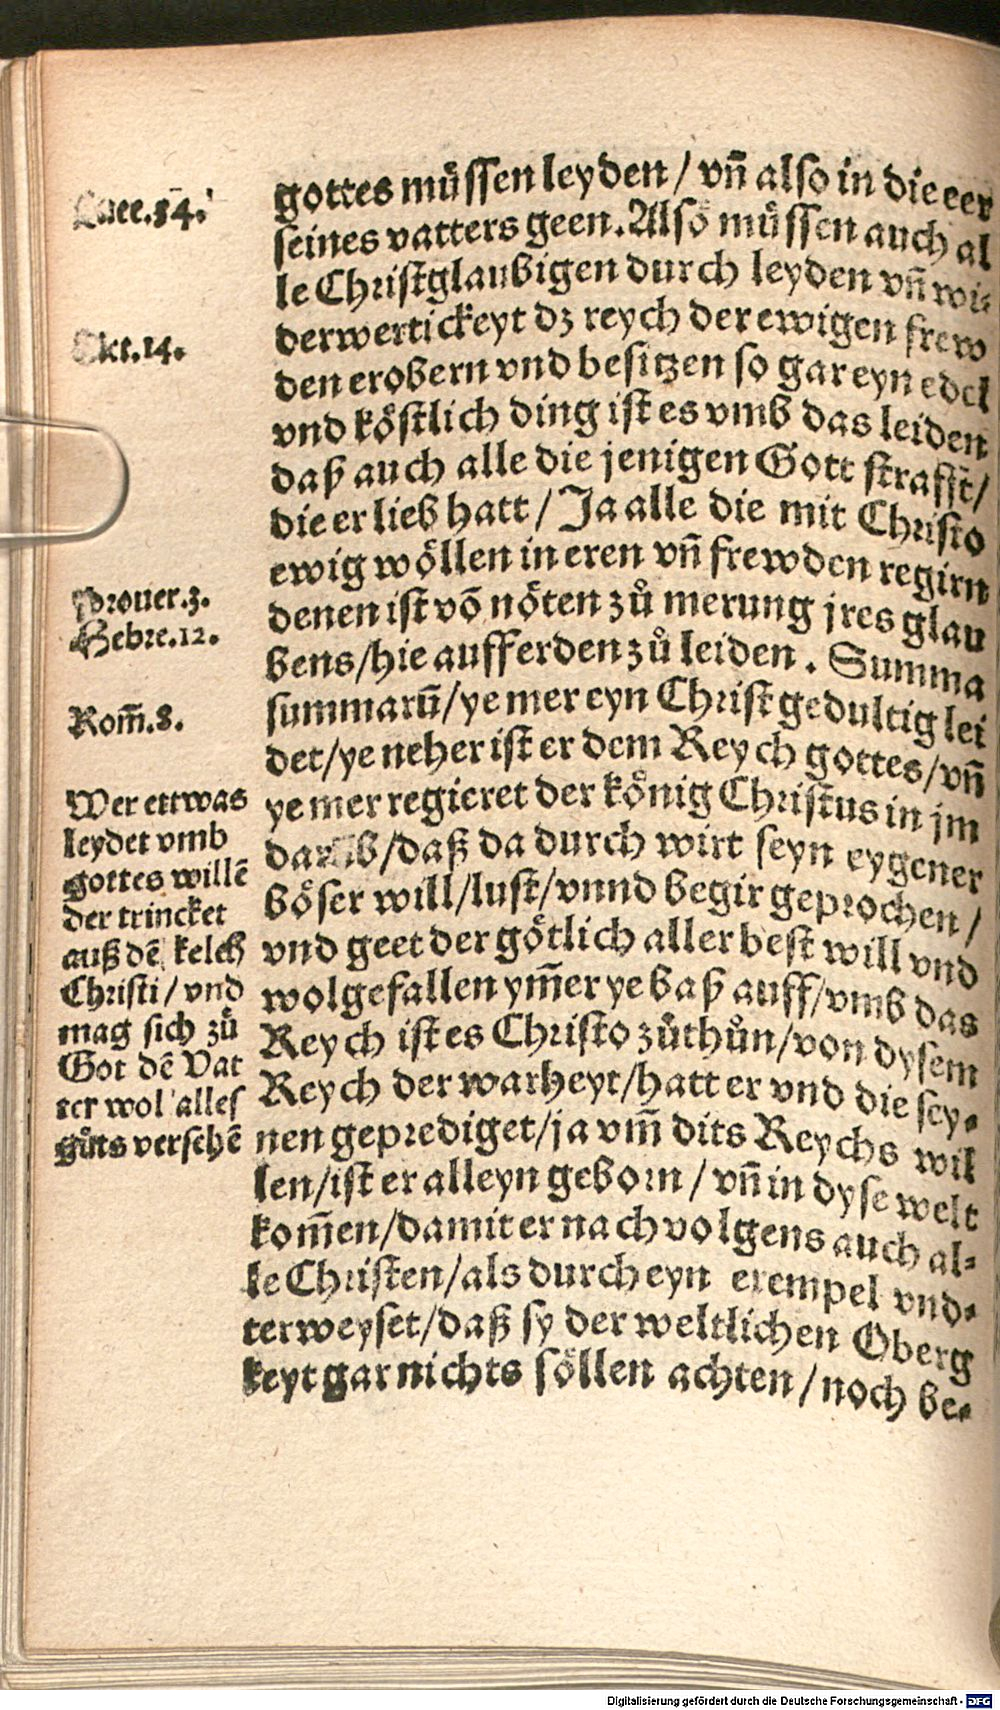 gottes müssen leyden / vñ also in die eer
seines vatters geen. Also müssen auch al
le Christglaubigen durch leyden vñ wi-
derwertickeyt dz reych der ewigen frew
den erobern vnd besitzen so gar eyn edel
vnd köstlich ding ist es vmb das leiden
daß auch alle die jenigen Gott strafft /
die er lieb hatt / Ja alle die mit Christo
ewig wöllen in eren vñ frewden regirn
denen ist võ nöten zů merung jres glau
bens / hie auff erden zů leiden . Summa
summarũ / ye mer eyn Christ gedultig lei
det / ye neher ist er dem Reych gottes / vñ
ye mer regieret der könig Christus in jm
/ daß da durch wirt seyn eygener
böser will / lust / vnnd begir geprochen /
vnd geet der götlich aller best will vnd
wolgefallen ym̃er ye baß auff / vmb das
Reych ist es Christo zůthůn / von dysem
Reych der warheyt / hatt er vnd die sey-
nen geprediget / ja vm̃ dits Reychs wil
len / ist er alleyn geborn / vñ in dyse welt
kom̃en / damit er nach volgens auch al-
le Christen / als durch eyn exempel vnd-
terweyset / daß sy der weltlichen Oberg
keyt gar nichts söllen achten / noch be-
Luce.
Act.14.
Prouer.3.
Hebre.12.
Rom̃.8.
Wer ettwas
leydet vmb
gottes willẽ
der trincket
auß dẽ kelch
Christi / vnd
mag sich zů
Got dẽ Vat
ter wol alles
gůts versehẽ
Digitalisierung gefördert durch die Deutsche Forschungsgemeinschaft - DFG